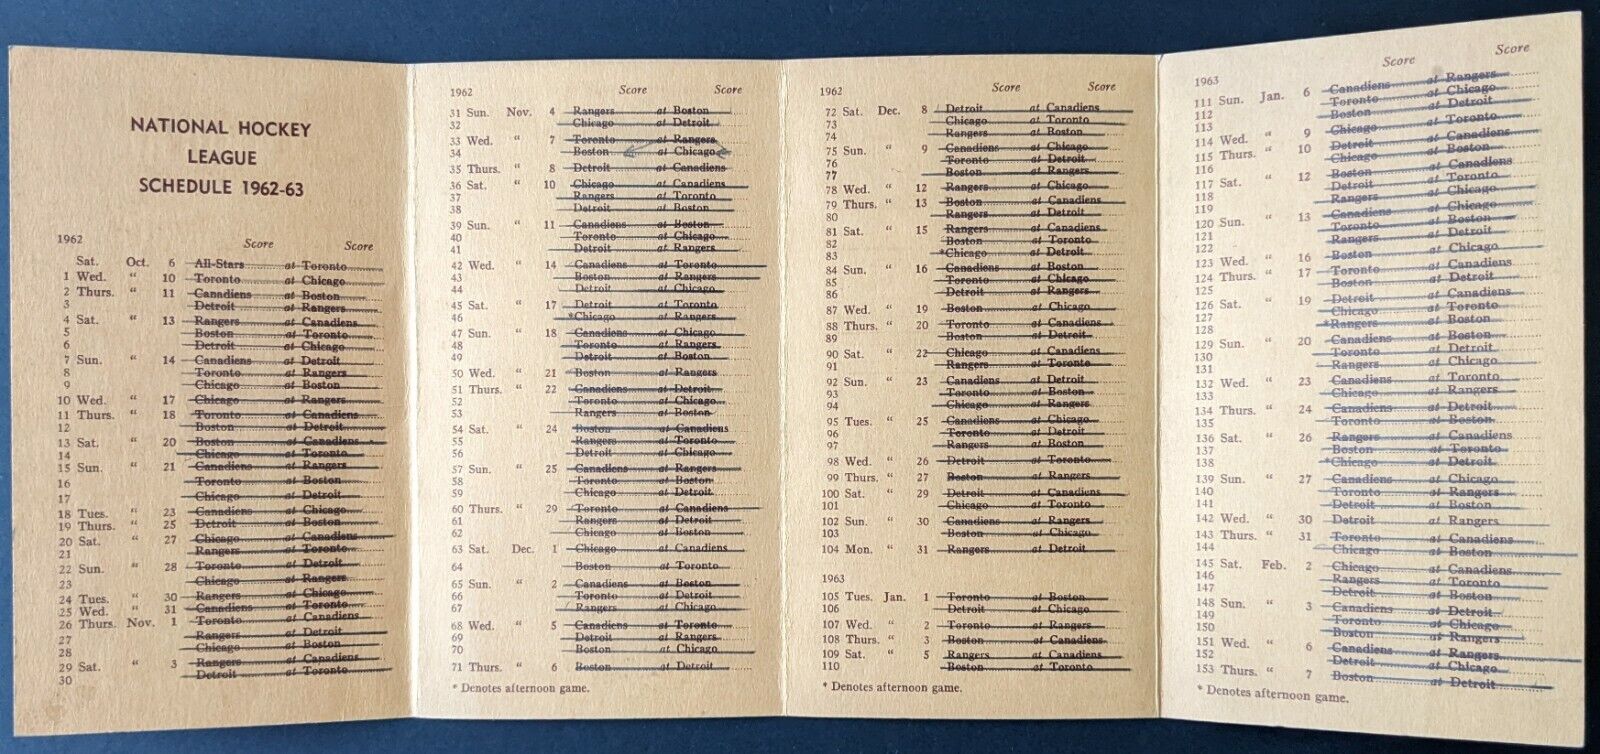 NATIONAL HOCKEY
LEAGUE
SCHEDULE 1962-63
1962
Score Score
Sat. Oct. 6 All-Stars at Toronto
1 Wed. " 10 Toronto at Chicago
2 Thurs. " 11 Canadiens at Boston
3 Detroit at Rangers
4 Sat. " 13 Rangers at Canadiens
5 Boston at Toronto
6 Detroit at Chicago
7 Sun. " 14 Canadiens at Detroit
8 Toronto at Rangers
9 Chicago at Boston
10 Wed. " 17 Chicago at Rangers
11 Thurs. " 18 Toronto at Canadiens
12 Boston at Detroit
13 Sat. " 20 Boston at Canadiens
14 Chicago at Toronto
15 Sun. " 21 Canadiens at Rangers
16 Toronto at Boston
17 Chicago at Detroit
18 Tues. " 23 Canadiens at Chicago
19 Thurs. " 25 Detroit at Boston
20 Sat. " 27 Chicago at Canadiens
21 Rangers at Toronto
22 Sun. " 28 Toronto at Detroit
23 Chicago at Rangers
24 Tues. " 30 Rangers at Chicago
25 Wed. " 31 Canadiens at Toronto
26 Thurs. Nov. 1 Toronto at Canadiens
27 Rangers at Detroit
28 Chicago at Boston
29 Sat. " 3 Rangers at Canadiens
30 Detroit at Toronto
1962 Score Score
31 Sun. Nov. 4 Rangers at Boston
32 Chicago at Detroit
33 Wed. " 7 Toronto at Rangers
34 Boston at Chicago
35 Thurs. " 8 Detroit at Canadiens
36 Sat. " 10 Chicago at Canadiens
37 Rangers at Toronto
38 Detroit at Boston
39 Sun. " 11 Canadiens at Boston
40 Toronto at Chicago
41 Detroit at Rangers
42 Wed. " 14 Canadiens at Toronto
43 Boston at Rangers
44 Detroit at Chicago
45 Sat. " 17 Detroit at Toronto
46 *Chicago at Rangers
47 Sun. " 18 Canadiens at Chicago
48 Toronto at Rangers
49 Detroit at Boston
50 Wed. " 21 Boston at Rangers
51 Thurs. " 22 Canadiens at Detroit
52 Toronto at Chicago
53 Rangers at Boston
54 Sat. " 24 Boston at Canadiens
55 Rangers at Toronto
56 Detroit at Chicago
57 Sun. " 25 Canadiens at Rangers
58 Toronto at Boston
59 Chicago at Detroit
60 Thurs. " 29 Toronto at Canadiens
61 Rangers at Detroit
62 Chicago at Boston
63 Sat. Dec. 1 Chicago at Canadiens
64 Boston at Toronto
65 Sun. " 2 Canadiens at Boston
66 Toronto at Detroit
67 Rangers at Chicago
68 Wed. " 5 Canadiens at Toronto
69 Detroit at Rangers
70 Boston at Chicago
71 Thurs. " 6 Boston at Detroit
* Denotes afternoon game.
1962 Score Score
72 Sat. Dec. 8 Detroit at Canadiens
73 Chicago at Toronto
74 Rangers at Boston
75 Sun. " 9 Canadiens at Chicago
76 Toronto at Detroit
77 Boston at Rangers
78 Wed. " 12 Rangers at Chicago
79 Thurs. " 13 Boston at Canadiens
80 Rangers at Detroit
81 Sat. " 15 Rangers at Canadiens
82 Boston at Toronto
83 *Chicago at Detroit
84 Sun. " 16 Canadiens at Boston
85 Toronto at Chicago
86 Detroit at Rangers
87 Wed. " 19 Boston at Chicago
88 Thurs. " 20 Toronto at Canadiens
89 Boston at Detroit
90 Sat. " 22 Chicago at Canadiens
91 Rangers at Toronto
92 Sun. " 23 Canadiens at Detroit
93 Toronto at Boston
94 Chicago at Rangers
95 Tues. " 25 Canadiens at Chicago
96 Toronto at Detroit
97 Rangers at Boston
98 Wed. " 26 Detroit at Toronto
99 Thurs. " 27 Boston at Rangers
100 Sat. " 29 Detroit at Canadiens
101 Chicago at Toronto
102 Sun. " 30 Canadiens at Rangers
103 Boston at Chicago
104 Mon. " 31 Rangers at Detroit
1963
105 Tues. Jan. 1 Toronto at Boston
106 Detroit at Chicago
107 Wed. " 2 Toronto at Rangers
108 Thurs. " 3 Boston at Canadiens
109 Sat. " 5 Rangers at Canadiens
110 Boston at Toronto
* Denotes afternoon game.
1963 Score Score
111 Sun. Jan. 6 Canadiens at Rangers
112 Toronto at Chicago
113 Boston at Detroit
114 Wed. " 9 Chicago at Toronto
115 Thurs. " 10 Detroit at Canadiens
116 Chicago at Boston
117 Sat. " 12 Boston at Canadiens
118 Detroit at Toronto
119 Rangers at Chicago
120 Sun. " 13 Canadiens at Chicago
121 Toronto at Boston
122 Rangers at Detroit
123 Wed. " 16 Boston at Chicago
124 Thurs. " 17 Toronto at Canadiens
125 Boston at Detroit
126 Sat. " 19 Detroit at Canadiens
127 Chicago at Toronto
128 *Rangers at Boston
129 Sun. " 20 Canadiens at Boston
130 Toronto at Detroit
131 Rangers at Chicago
132 Wed. " 23 Canadiens at Toronto
133 Chicago at Rangers
134 Thurs. " 24 Canadiens at Detroit
135 Toronto at Boston
136 Sat. " 26 Rangers at Canadiens
137 Boston at Toronto
138 *Chicago at Detroit
139 Sun. " 27 Canadiens at Chicago
140 Toronto at Rangers
141 Detroit at Boston
142 Wed. " 30 Detroit at Rangers
143 Thurs. " 31 Toronto at Canadiens
144 Chicago at Boston
145 Sat. Feb. 2 Chicago at Canadiens
146 Rangers at Toronto
147 Detroit at Boston
148 Sun. " 3 Canadiens at Detroit
149 Toronto at Chicago
150 Boston at Rangers
151 Wed. " 6 Canadiens at Rangers
152 Detroit at Chicago
153 Thurs. " 7 Boston at Detroit
* Denotes afternoon game.